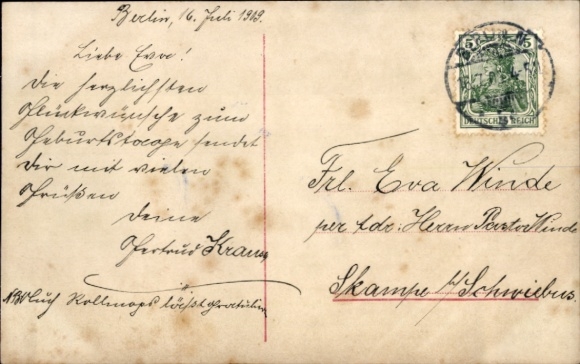 Berlin, 16. Juli 1909.
Liebe Eva!
Die herzlichsten
Glückwünsche zum
Geburtstage sendet
Dir mit vielen
Grüßen
Deine
Gertrud Kranz
Auch Rollmops läßt gratulieren
5 5
BERLIN
DEUTSCHES REICH
Frl. Eva Winde
per adr: Herrn Pastor Winde
Skampe b/ Schwiebus.